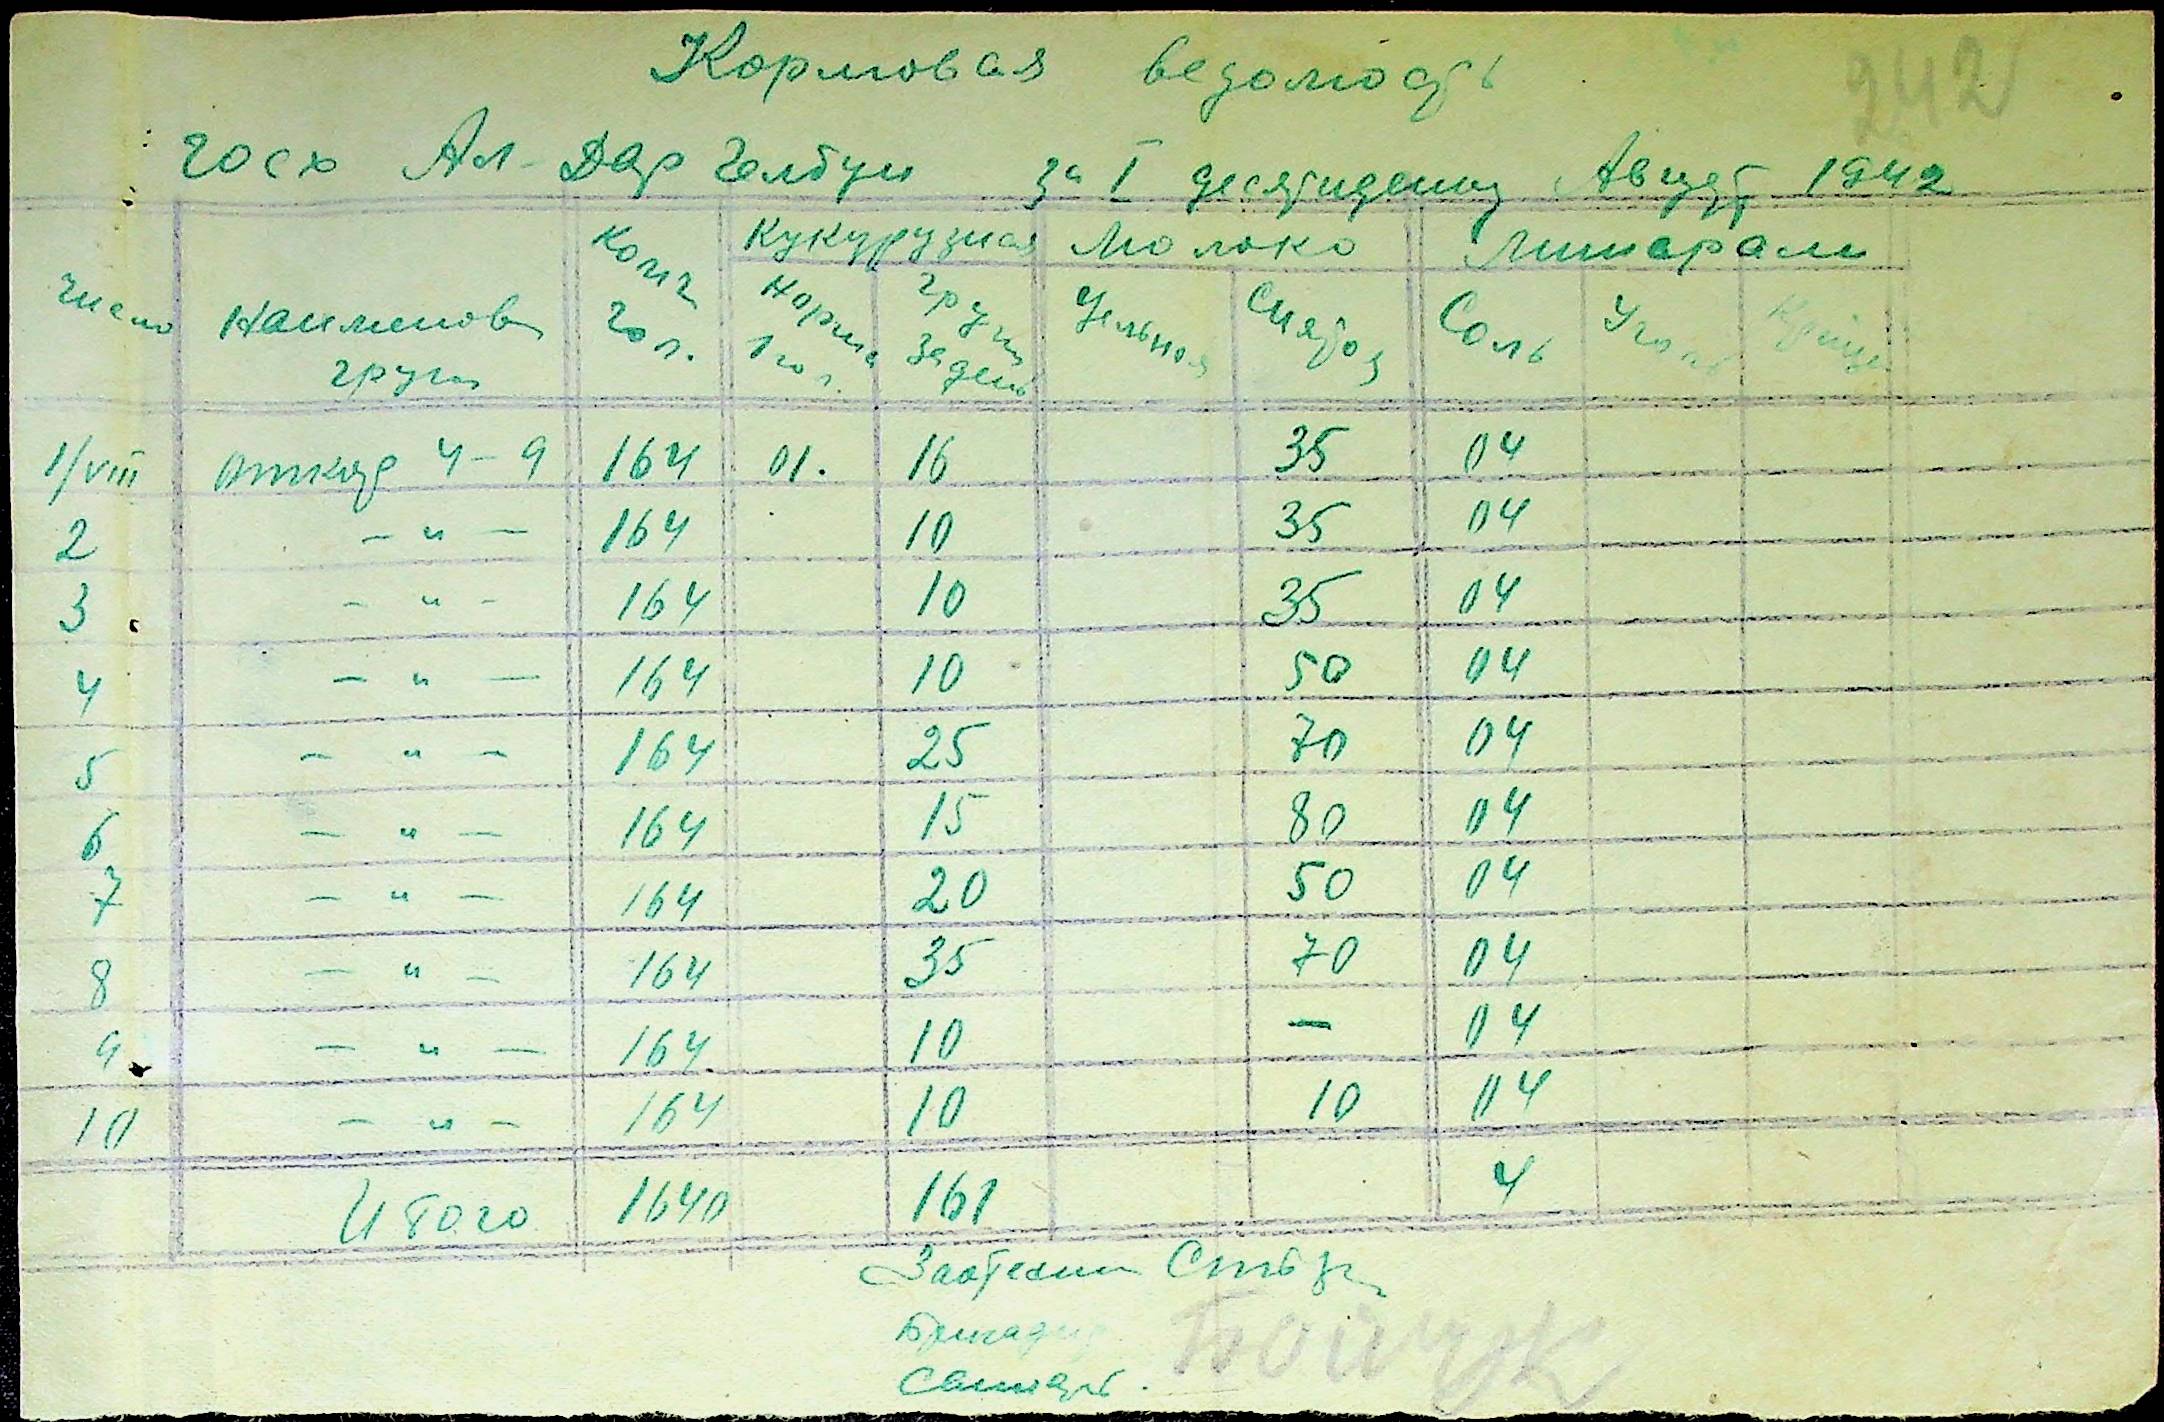 242
Кормовая ведомость
госх Ал-Дар за I десятидневку Август 1942
Число Наименов групп Колич гол. Кукурузная Молоко Минерали
Норма 1 гол. груп за день Цельное Снятое Соль Уголь
1/VIII 4-9 164 01. 16 35 04
2 - " - 164 10 35 04
3 - " - 164 10 35 04
4 - " - 164 10 50 04
5 - " - 164 25 70 04
6 - " - 164 15 80 04
7 - " - 164 20 50 04
8 - " - 164 35 70 04
9 - " - 164 10 - 04
10 - " - 164 10 10 04
Итого 1640 161 4
Зоотехник
Бригадир Бойчук